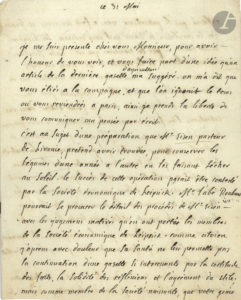 ce 31 Mai
je me suis présenté chez vous Monsieur, pour avoir
l'honneur de vous voir, et vous faire part d'une idée qu'un
d'agriculture
article de la dernière gazette m'a suggéré. on m'a dit que
vous étiez à la campagne, et que l'on ignoroit le tems
où vous reviendriez à paris, ainsi je prends la liberté de
vous communiquer ma pensée par écrit.
c'est au sujet d'une préparation que Mr Eisen pasteur
de Livonie, prétend avoir trouvée, pour conserver les
légumes d'une année à l'autre en les faisant sécher
au Soleil. le succès de cette opération paroit être constaté
par la Société économique de Leipsick. Mr l'abé
pourroit se procurer le détail des procédés de Mr Eisen
avec les jugemens motivés qu'en ont portés les membres
de la Société économique de Leipsick. comme citoyen
j'aprens avec douleur que sa santé ne lui permette pas
la continuation d'une gazette si intéressante par la certitude
des faits, la solidité des réflexions et l'agrément du stile,
mais comme membre de la Société naissante, que votre génie